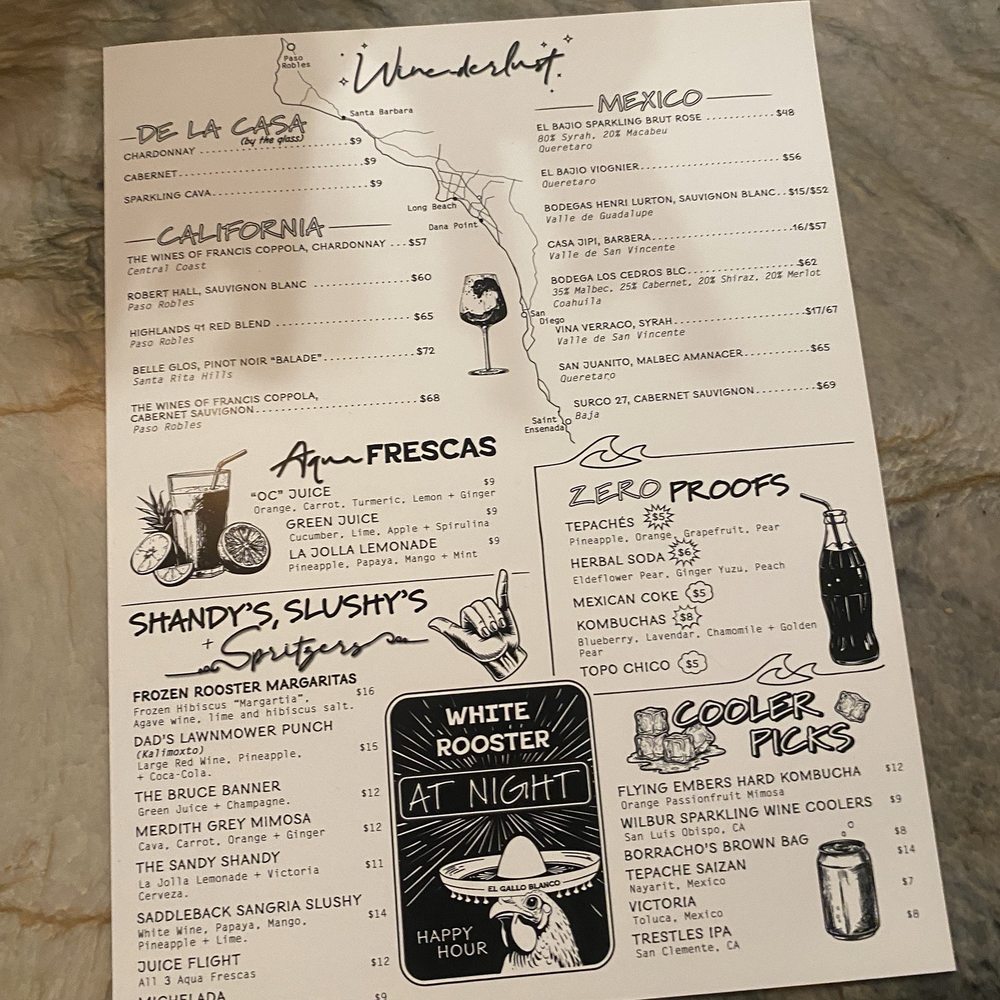 Winederlust
Paso
Robles
Santa Barbara
Long Beach
Dana Point
San
Diego
Saint
Ensenada
DE LA CASA
(by the glass)
CHARDONNAY ........ $9
CABERNET ........ $9
SPARKLING CAVA ........ $9
CALIFORNIA
THE WINES OF FRANCIS COPPOLA, CHARDONNAY ... $57
Central Coast
ROBERT HALL, SAUVIGNON BLANC ........ $60
Paso Robles
HIGHLANDS 41 RED BLEND ........ $65
Paso Robles
BELLE GLOS, PINOT NOIR "BALADE" ........ $72
Santa Rita Hills
THE WINES OF FRANCIS COPPOLA,
CABERNET SAUVIGNON ........ $68
Paso Robles
MEXICO
EL BAJIO SPARKLING BRUT ROSE ........ $48
80% Syrah, 20% Macabeu
Queretaro
EL BAJIO VIOGNIER ........ $56
Queretaro
BODEGAS HENRI LURTON, SAUVIGNON BLANC.. $15/$52
Valle de Guadalupe
CASA JIPI, BARBERA ........ 16/$57
Valle de San Vincente
BODEGA LOS CEDROS BLC ........ $62
35% Malbec, 25% Cabernet, 20% Shiraz, 20% Merlot
Coahuila
VINA VERRACO, SYRAH ........ $17/67
Valle de San Vincente
SAN JUANITO, MALBEC AMANACER ........ $65
Queretaro
SURCO 27, CABERNET SAUVIGNON ........ $69
Baja
Aqua FRESCAS
"OC" JUICE $9
Orange, Carrot, Turmeric, Lemon + Ginger
GREEN JUICE $9
Cucumber, Lime, Apple + Spirulina
LA JOLLA LEMONADE $9
Pineapple, Papaya, Mango + Mint
ZERO PROOFS
TEPACHÉS $5
Pineapple, Orange, Grapefruit, Pear
HERBAL SODA $6
Eldeflower Pear, Ginger Yuzu, Peach
MEXICAN COKE $5
KOMBUCHAS $8
Blueberry, Lavendar, Chamomile + Golden
Pear
TOPO CHICO $5
SHANDY'S, SLUSHY'S
+ Spritzers
FROZEN ROOSTER MARGARITAS $16
Frozen Hibiscus "Margartia",
Agave wine, lime and hibiscus salt.
DAD'S LAWNMOWER PUNCH
(Kalimoxto) $15
Large Red Wine, Pineapple,
+ Coca-Cola.
THE BRUCE BANNER $12
Green Juice + Champagne.
MERDITH GREY MIMOSA $12
Cava, Carrot, Orange + Ginger
THE SANDY SHANDY $11
La Jolla Lemonade + Victoria
Cerveza.
SADDLEBACK SANGRIA SLUSHY $14
White Wine, Papaya, Mango,
Pineapple + Lime.
JUICE FLIGHT $12
All 3 Aqua Frescas
MICHELADA $9
WHITE
ROOSTER
AT NIGHT
EL GALLO BLANCO
HAPPY
HOUR
COOLER
PICKS
FLYING EMBERS HARD KOMBUCHA $12
Orange Passionfruit Mimosa
WILBUR SPARKLING WINE COOLERS $9
San Luis Obispo, CA
BORRACHO'S BROWN BAG $8
TEPACHE SAIZAN $14
Nayarit, Mexico
VICTORIA $7
Toluca, Mexico
TRESTLES IPA $8
San Clemente, CA